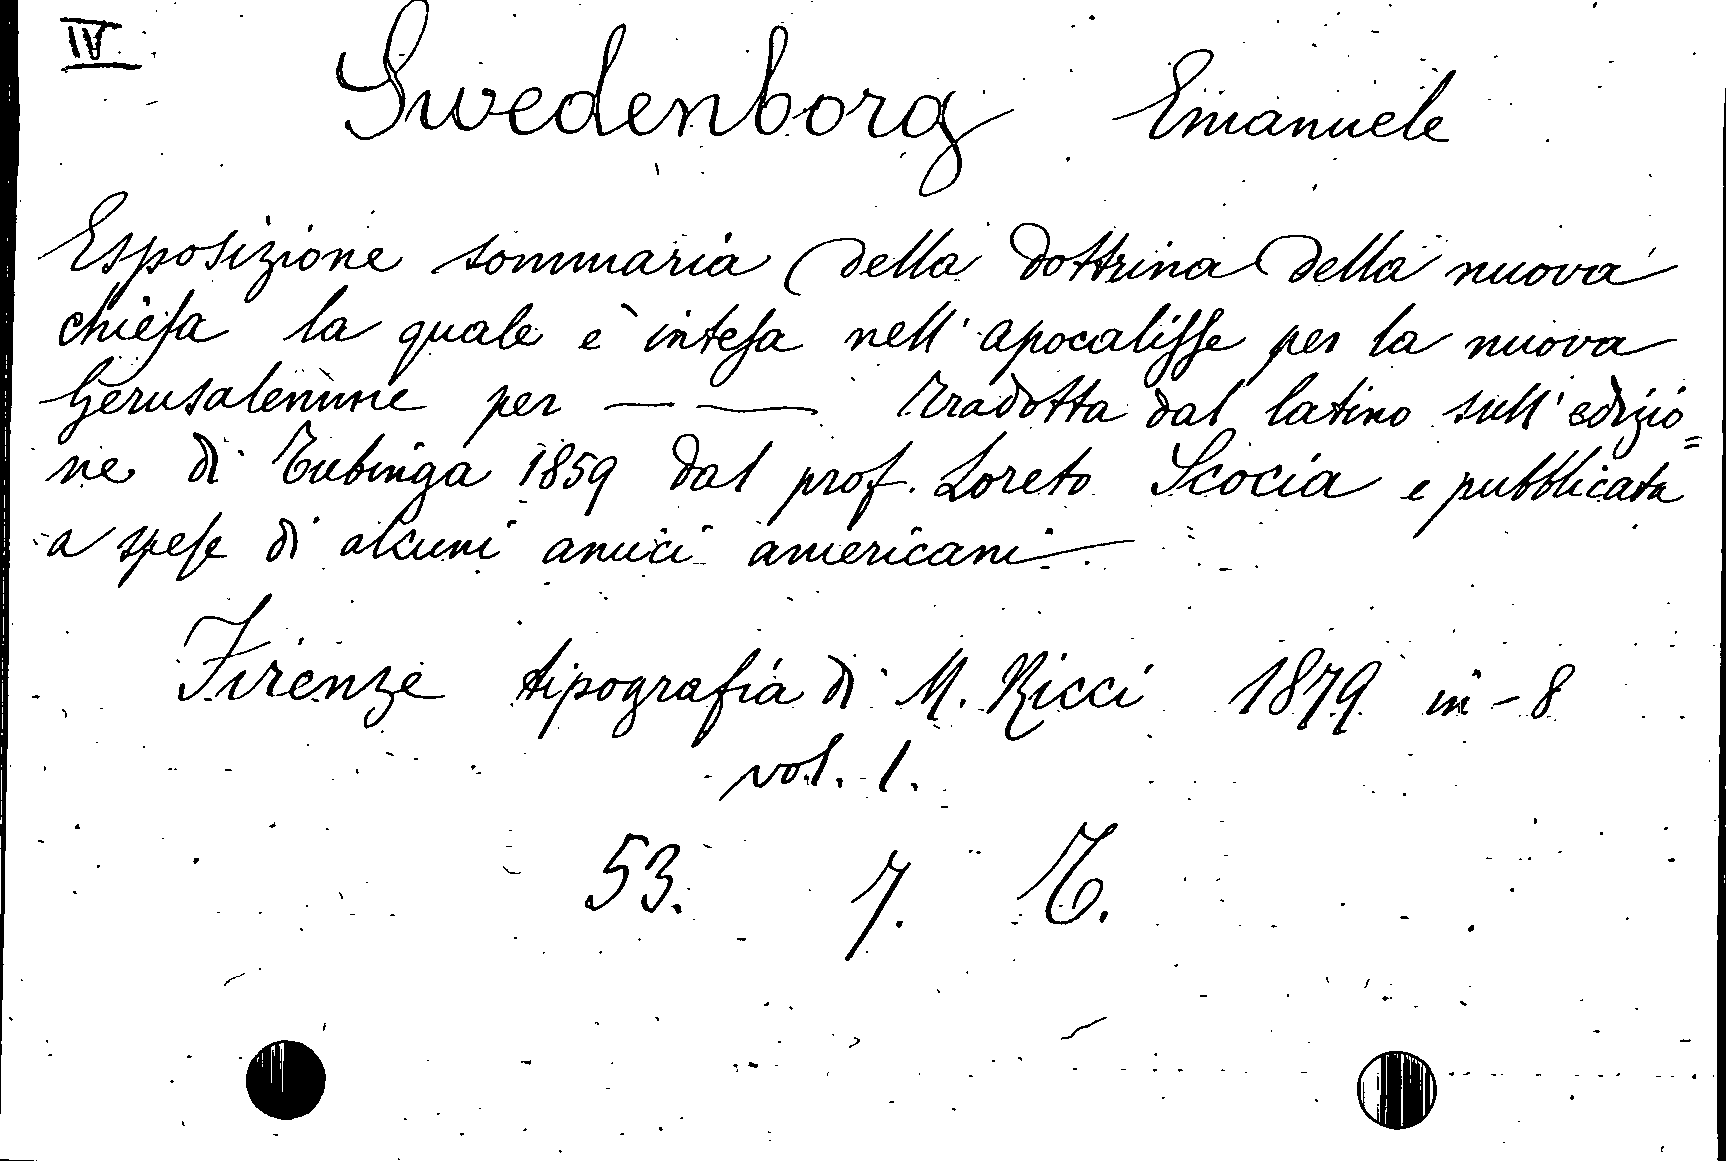 IV
Swedenborg Emanuele
Esposizione sommaria della dottrina della nuova
chiesa la quale è intesa nell'apocalisse per la nuova
Gerusalemme per — — tradotta dal latino sull'edizio=
ne di Tubinga 1859 dal prof. Loreto Scocia e pubblicata
a spese di alcuni amici americani
Firenze tipografia di M. Ricci 1879 in-8
vol. 1.
53. 7.